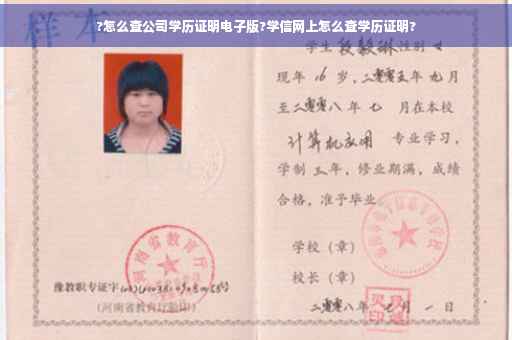 ?怎么查公司学历证明电子版?学信网上怎么查学历证明?
样本
学生段毅琳性别女
现年16岁，二零零五年九月
至二零零八年七月在本校
计算机应用 专业学习，
学制三年，修业期满，成绩
合格，准予毕业
学校（章）
校长（章）
二零零八年七月一日
河南省教育厅
豫教职专证字
(河南省教育厅验印)